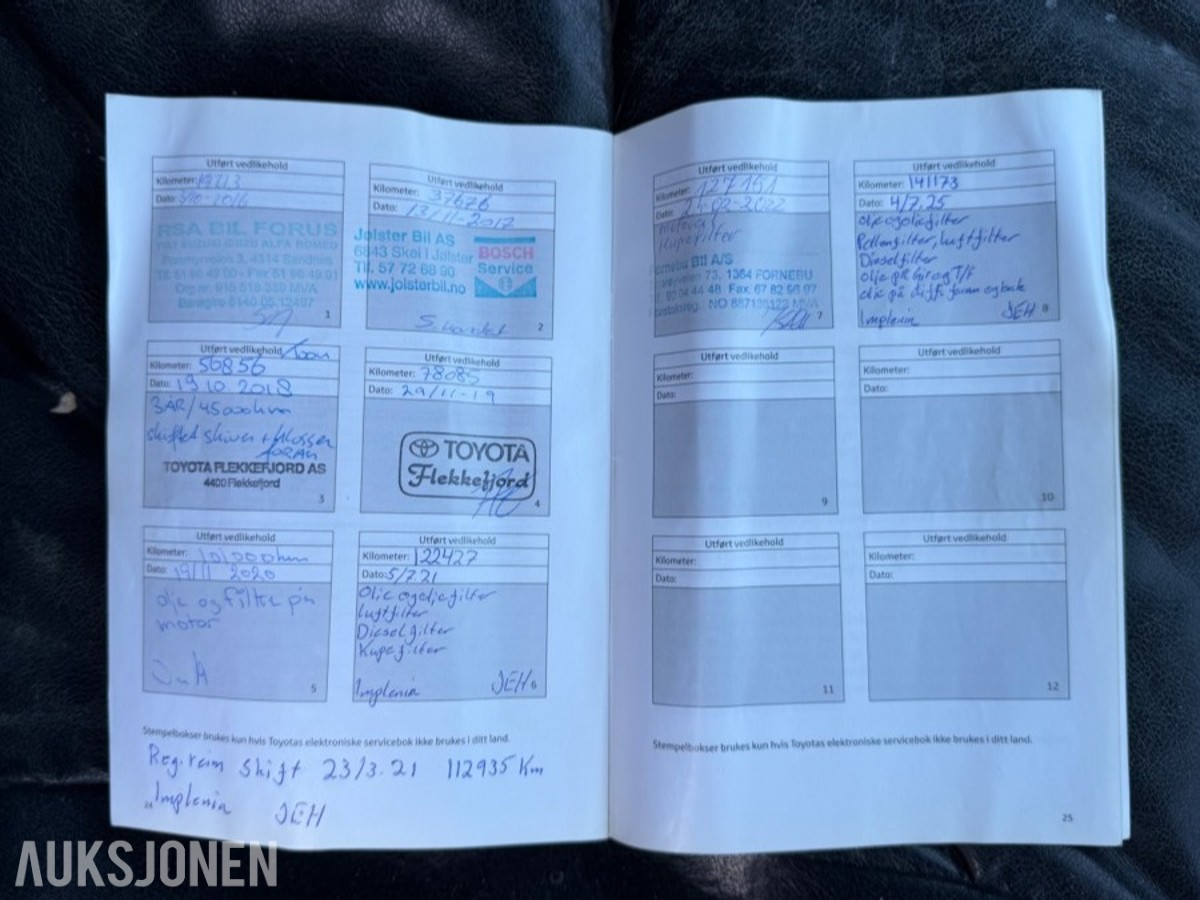 Utført vedlikehold
Kilometer:
Dato:
RSA BIL FORUS
FIAT SUZUKI ISUZU ALFA ROMEO
4314 Sandnes
Org.nr. 915 518 330 MVA
1
Utført vedlikehold
Kilometer: 37676
Dato: 13/11-2017
Jølster Bil AS
6843 Skei i Jølster
Tlf. 57 72 68 90
www.jolsterbil.no
BOSCH
Service
2
Utført vedlikehold
Kilometer: 56856
Dato: 19.10.2018
3ÅR/45000km
skiftet skiver + klosser
FORAN
TOYOTA FLEKKEFJORD AS
4400 Flekkefjord
3
Utført vedlikehold
Kilometer: 78085
Dato: 29/11-19
TOYOTA
Flekkefjord
4
Utført vedlikehold
Kilometer: 101000km
Dato: 19/11 2020
olje og filter på
motor
5
Utført vedlikehold
Kilometer: 122427
Dato: 5/7.21
Olje og oljefilter
luftfilter
Dieselfilter
Kupefilter
Implenia JEH 6
Stempelbokser brukes kun hvis Toyotas elektroniske servicebok ikke brukes i ditt land.
Reg.reim skift 23/3.21 112935 Km
Implenia JEH
Utført vedlikehold
Kilometer: 127151
Dato: 24-02-2022
Kupefilter
Fornebu Bil A/S
73, 1364 FORNEBU
Fax: 67 82 96 97
7
Utført vedlikehold
Kilometer: 141173
Dato: 4/7.25
olje og oljefilter
Pollenfilter, luftfilter
Dieselfilter
olje på gir og T/F
olje på diff. foran og bak
Implenia JEH 8
Utført vedlikehold
Kilometer:
Dato:
9
Utført vedlikehold
Kilometer:
Dato:
10
Utført vedlikehold
Kilometer:
Dato:
11
Utført vedlikehold
Kilometer:
Dato:
12
Stempelbokser brukes kun hvis Toyotas elektroniske servicebok ikke brukes i ditt land.
25
AUKSJONEN